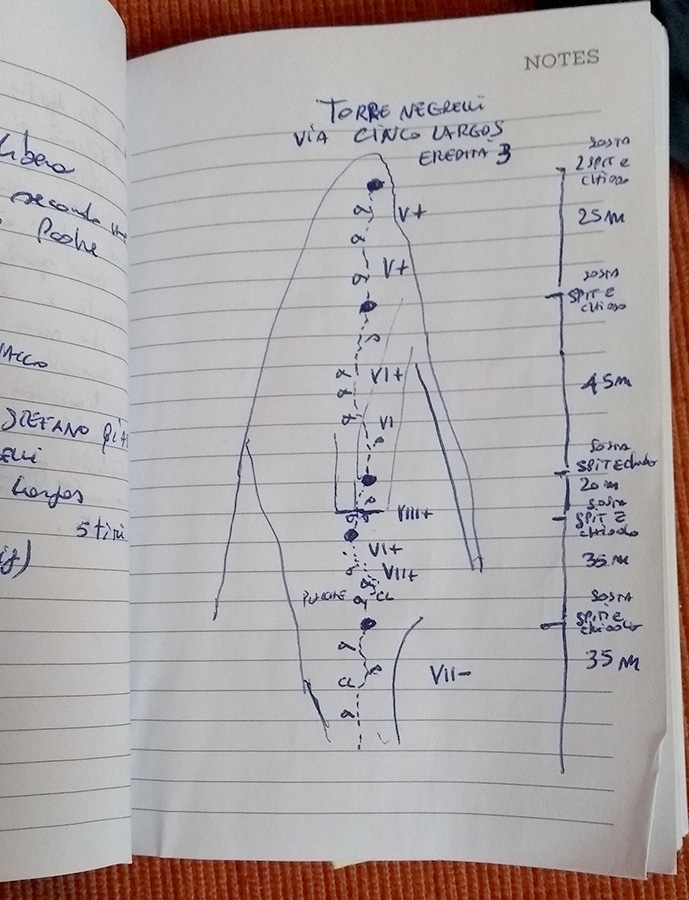 NOTES
TORRE NEGRELLI
VIA CINCO LARGOS
EREDITÀ 3
libero
secondo
Poche
STEFANO
ELLI
Largos
5 tiri
V+
V+
VI+
VI
VIII+
VI+
VII+
CL
CL
VII-
SOSTA
2 SPIT E
CHIODO
25 M
SOSTA
SPIT E
CHIODO
45 M
SOSTA
SPIT E CHIODO
20 M
SOSTA
SPIT E
CHIODO
35 M
SOSTA
SPIT E
CHIODO
35 M